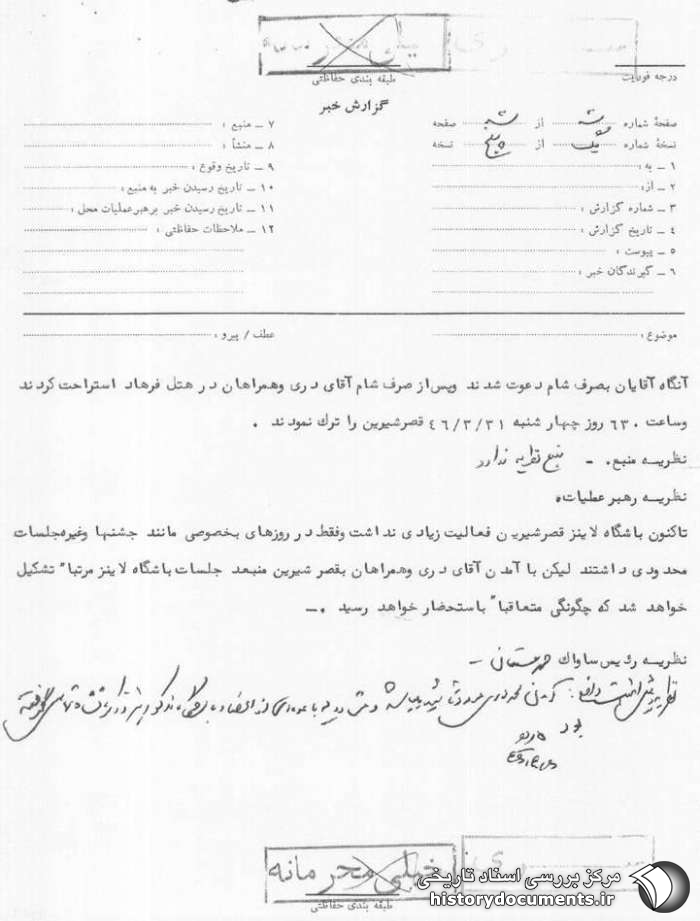 خیلی محرمانه
طبقه بندی حفاظتی
درجه فوریت
گزارش خبر
صفحهٔ شماره سه از سه صفحه
نسخهٔ شماره یک از پنج نسخه
۱ ــ به :
۲ ــ از :
۳ ــ شماره گزارش :
۴ ــ تاریخ گزارش :
۵ ــ پیوست :
۶ ــ گیرندگان خبر :
۷ ــ منبع :
۸ ــ منشأ :
۹ ــ تاریخ وقوع :
۱۰ ــ تاریخ رسیدن خبر به منبع :
۱۱ ــ تاریخ رسیدن خبر برهبر عملیات محل :
۱۲ ــ ملاحظات حفاظتی :
موضوع :
عطف / پیرو :
آنگاه آقایان بصرف شام دعوت شدند وپس از صرف شام آقای دری وهمراهان در هتل فرهاد استراحت کردند
وساعت ۶۳۰ روز چهار شنبه ۴۶/۳/۳۱ قصرشیرین را ترك نمودند .
نظریه منبع. ـ منبع نظریه ندارد
نظریه رهبر عملیات.
تاکنون باشگاه لاینز قصرشیرین فعالیت زیادی نداشت وفقط در روزهای بخصوصی مانند جشنها وغیره جلسات
محدودی داشتند لیکن با آمدن آقای دری وهمراهان بقصر شیرین منبعد جلسات باشگاه لاینز مرتباً تشکیل
خواهد شد که چگونگی متعاقباً باستحضار خواهد رسید .ـ
نظریه رئیس ساواك
بود
خیلی محرمانه
طبقه بندی حفاظتی
مرکز بررسی اسناد تاریخی
historydocuments.ir